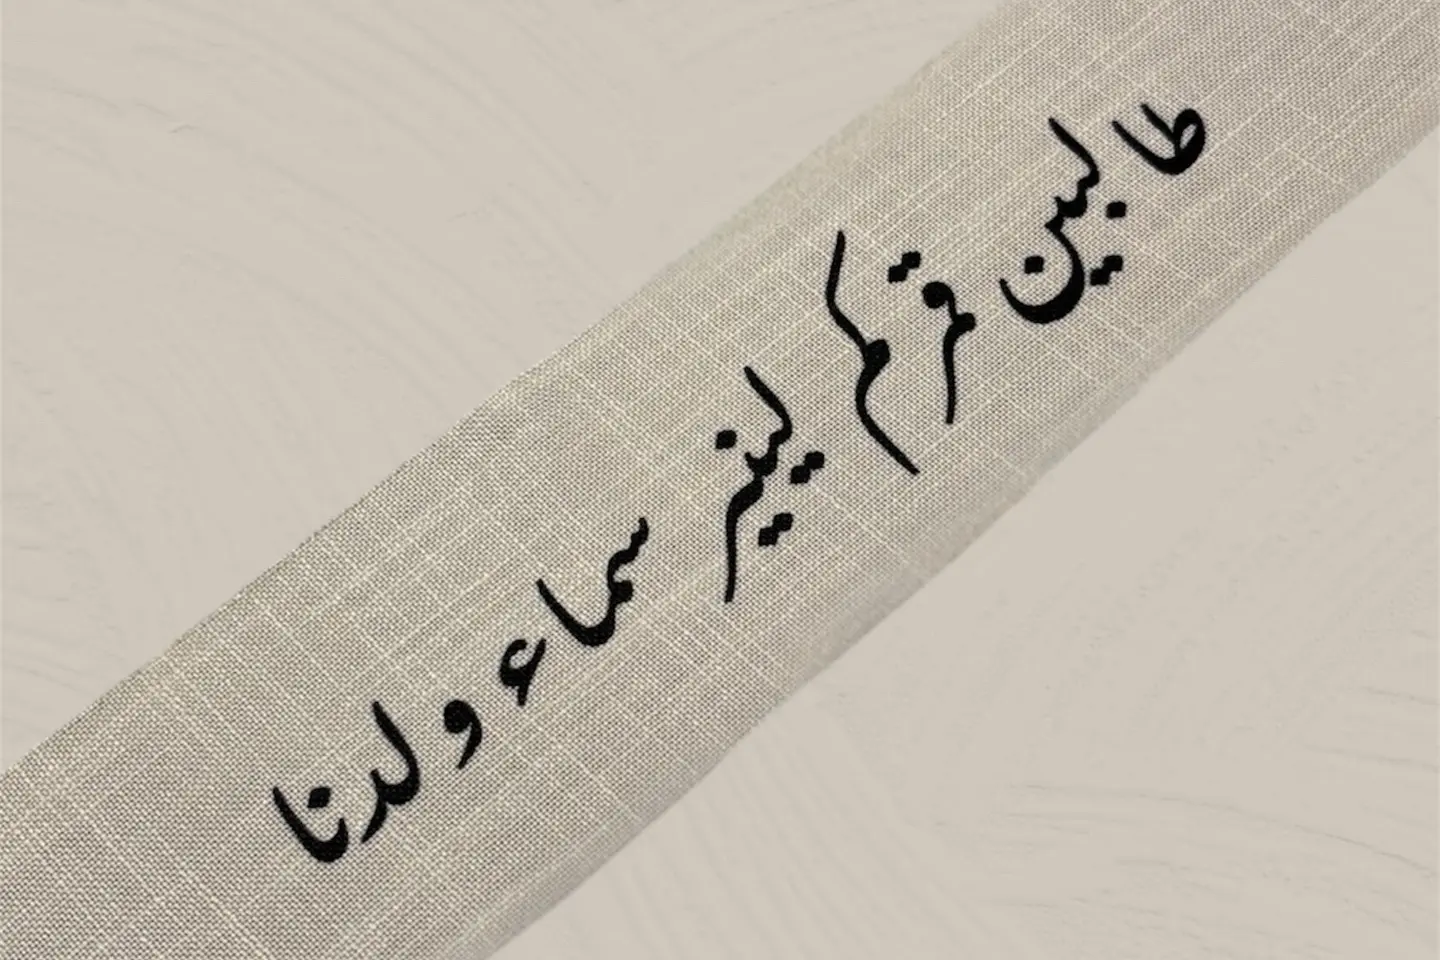 طالبين قمركم لينير سماء ولدنا